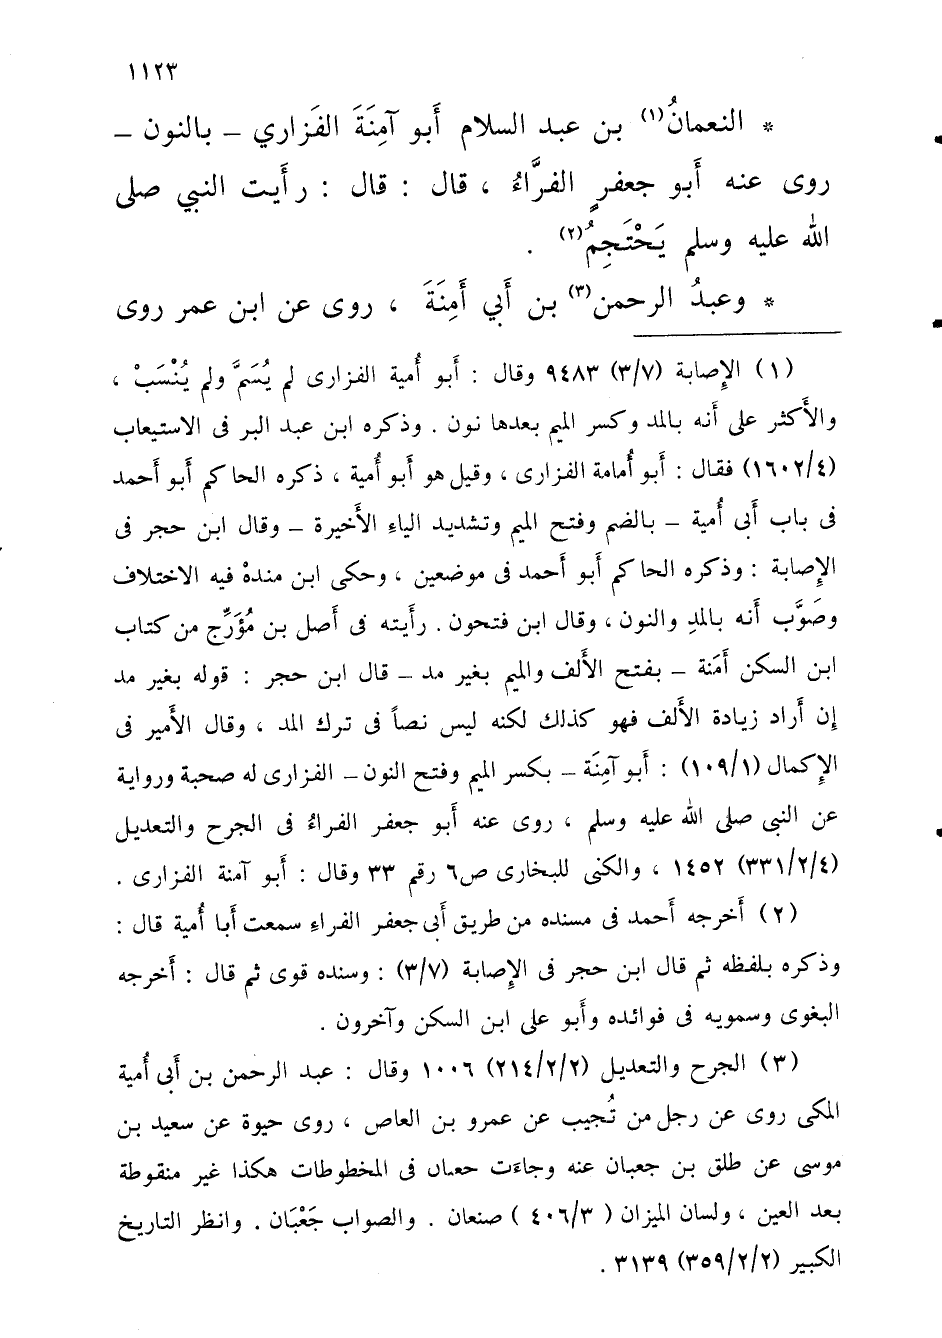 ١١٢٣
* النعمانُ(١) بن عبد السلام أَبو آمِنَةَ الفَزاري ــ بالنون ــ
روى عنه أَبو جعفرٍ الفرَّاءُ ، قال : قال : رأَيت النبي صلى
الله عليه وسلم يَحْتَجِمُ(٢) .
* وعبدُ الرحمن(٣) بن أَبي أَمِنَةَ ، روى عن ابن عمر روى
(١) الإِصابة (٣/٧) ٩٤٨٣ وقال : أَبو أُمية الفزارى لم يُسَمَّ ولم يُنْسَبْ ،
والأَكثر على أَنه بالمد وكسر الميم بعدها نون . وذكره ابن عبد البر فى الاستيعاب
(١٦٠٢/٤) فقال : أَبو أُمامة الفزارى ، وقيل هو أَبو أُمية ، ذكره الحاكم أَبو أحمد
فى باب أَبى أُمية ــ بالضم وفتح الميم وتشديد الياء الأَخيرة ــ وقال ابن حجر فى
الإِصابة : وذكره الحاكم أَبو أَحمد فى موضعين ، وحكى ابن مندهْ فيه الاختلاف
وصَوَّب أَنه بالمدِ والنون ، وقال ابن فتحون . رأَيته فى أَصل بن مُؤَرِّج من كتاب
ابن السكن أَمَنة ــ بفتح الأَلف والميم بغير مد ــ قال ابن حجر : قوله بغير مد
إِن أَراد زيادة الأَلف فهو كذلك لكنه ليس نصاً فى ترك المد ، وقال الأَمير فى
الإِكمال (١٠٩/١) : أَبو آمِنَة ــ بكسر الميم وفتح النون ــ الفزارى له صحبة ورواية
عن النبى صلى الله عليه وسلم ، روى عنه أَبو جعفر الفراءُ فى الجرح والتعديل
(٣٣١/٢/٤) ١٤٥٢ ، والكنى للبخارى ص٦ رقم ٣٣ وقال : أَبو آمنة الفزارى .
(٢) أَخرجه أَحمد فى مسنده من طريق أَبى جعفر الفراءِ سمعت أَبا أُمية قال :
وذكره بلفظه ثم قال ابن حجر فى الإِصابة (٣/٧) : وسنده قوى ثم قال : أَخرجه
البغوى وسمويه فى فوائده وأَبو على ابن السكن وآخرون .
(٣) الجرح والتعديل (٢١٤/٢/٢) ١٠٠٦ وقال : عبد الرحمن بن أَبى أُمية
المكى روى عن رجل من تُجيب عن عمرو بن العاص ، روى حيوة عن سعيد بن
موسى عن طلق بن جعبان عنه وجاءَت حعىاں فى المخطوطات هكذا غير منقوطة
بعد العين ، ولسان الميزان ( ٤٠٦/٣ ) صنعان . والصواب جَعْبَان . وانظر التاريخ
الكبير (٣٥٩/٢/٢) ٣١٣٩ .